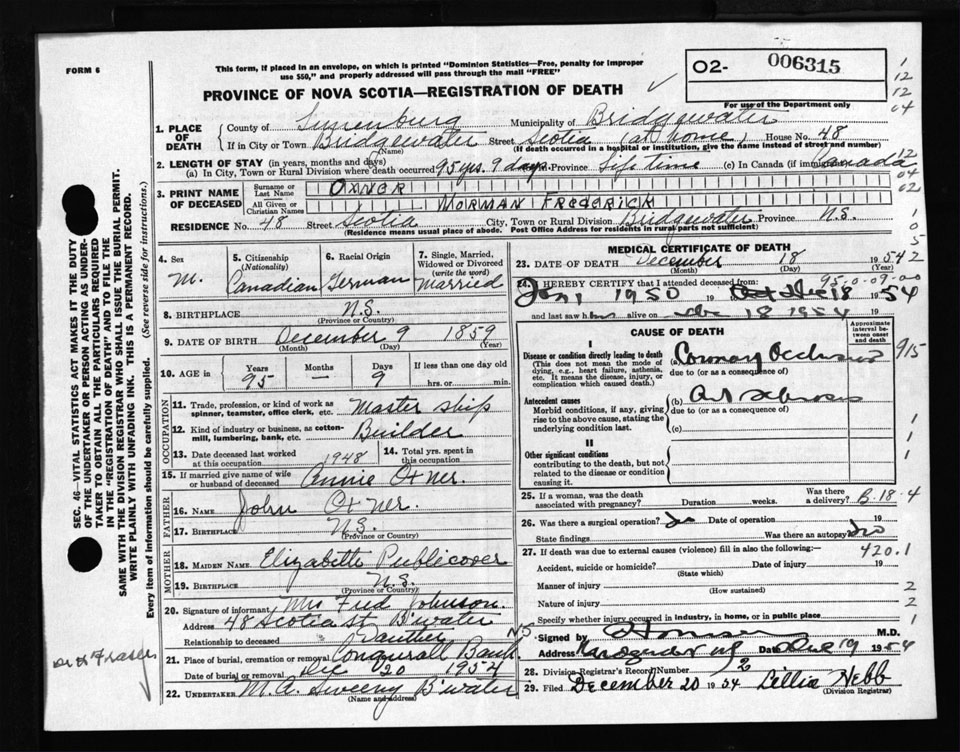 FORM 6
This form, if placed in an envelope, on which is printed "Dominion Statistics—Free, penalty for improper
use $50," and properly addressed will pass through the mail "FREE"
PROVINCE OF NOVA SCOTIA—REGISTRATION OF DEATH
O2- 006315
For use of the Department only
1
12
12
04
1. PLACE OF DEATH
County of Lunenburg Municipality of Bridgewater
If in City or Town Bridgewater Street Scotia (at home) House No. 48
(Name) (If death occurred in a hospital or institution, give the name instead of street and number)
2. LENGTH OF STAY (in years, months and days)
(a) In City, Town or Rural Division where death occurred 95 yrs. 9 days Province Life time (c) In Canada (if immigrant) Canada
12
04
02
3. PRINT NAME OF DECEASED
Surname or Last Name OXNER
All Given or Christian Names NORMAN FREDERICK
RESIDENCE No. 48 Street Scotia City, Town or Rural Division Bridgewater Province N.S.
(Residence means usual place of abode. Post Office Address for residents in rural parts not sufficient)
1
0
5
4. Sex
M.
5. Citizenship
(Nationality)
Canadian
6. Racial Origin
German
7. Single, Married,
Widowed or Divorced
(write the word)
Married
8. BIRTHPLACE N.S.
(Province or Country)
9. DATE OF BIRTH December 9 1859
(Month) (Day) (Year)
10. AGE in Years Months Days If less than one day old
95 — 9 hrs. or min.
OCCUPATION
11. Trade, profession, or kind of work as
spinner, teamster, office clerk, etc. Master ship
12. Kind of industry or business, as cotton-
mill, lumbering, bank, etc. Builder
13. Date deceased last worked
at this occupation 1948
14. Total yrs. spent in
this occupation
15. If married give name of wife
or husband of deceased Annie Oxner.
FATHER
16. NAME John Oxner.
17. BIRTHPLACE N.S.
(Province or Country)
MOTHER
18. MAIDEN NAME Elizabeth Publicover
19. BIRTHPLACE N.S.
(Province or Country)
20. Signature of informant Mrs Fred Johnson.
Address 48 Scotia St. B'water N.S
Relationship to deceased Dauther
21. Place of burial, cremation or removal Conquerall Bank
Date of burial or removal Dec 20 1954
22. UNDERTAKER M.A. Sweeny B'water
(Name and address)
MEDICAL CERTIFICATE OF DEATH
23. DATE OF DEATH December 18 1954
(Month) (Day) (Year)
2
95-0-09-00
24. I HEREBY CERTIFY that I attended deceased from:
Jan 1 1950 19 Dec 18 1954
and last saw him alive on Dec 18 1954 19
CAUSE OF DEATH
Approximate
interval be-
tween onset
and death
I
Disease or condition directly leading to death
(This does not mean the mode of
dying, e.g., heart failure, asthenia,
etc. It means the disease, injury, or
complication which caused death.)
(a) Coronary Occlusion
due to (or as a consequence of)
915
Antecedent causes
Morbid conditions, if any, giving
rise to the above cause, stating the
underlying condition last.
(b)
due to (or as a consequence of)
(c)
1
1
1
II
Other significant conditions
contributing to the death, but not
related to the disease or condition
causing it.
25. If a woman, was the death
associated with pregnancy? Duration weeks. Was there
a delivery?
B-18-4
26. Was there a surgical operation? no Date of operation 19
State findings Was there an autopsy? no
27. If death was due to external causes (violence) fill in also the following:— 420.1
Accident, suicide or homicide? Date of injury 19
(State which)
Manner of injury 2
(How sustained)
Nature of injury 2
Specify whether injury occurred in industry, in home, or in public place 1
Signed by M.D.
Address Date Dec 19 1954
28. Division Registrar's Record Number 12
29. Filed December 20 1954 Lillia Hebb
(Division Registrar)
SEC. 46—VITAL STATISTICS ACT MAKES IT THE DUTY
OF THE UNDERTAKER OR PERSON ACTING AS UNDER-
TAKER TO OBTAIN ALL THE PARTICULARS REQUIRED
IN THE "REGISTRATION OF DEATH" AND TO FILE THE
SAME WITH THE DIVISION REGISTRAR WHO SHALL ISSUE THE BURIAL PERMIT.
WRITE PLAINLY WITH UNFADING INK. THIS IS A PERMANENT RECORD.
Every item of information should be carefully supplied. (See reverse side for instructions.)
Fraser